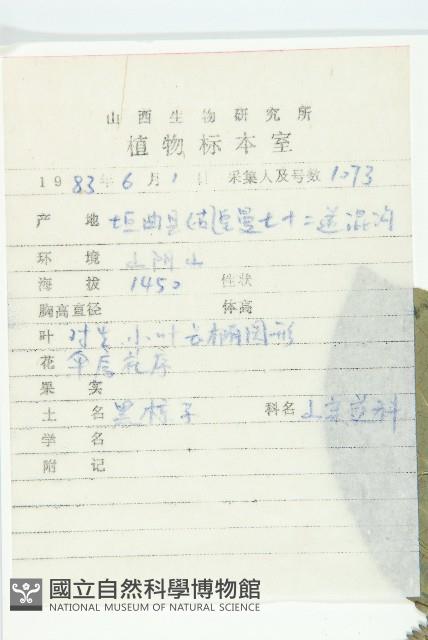 山西生物研究所
植物标本室
1983年6月1日 采集人及号数 1073
产地 垣曲县 七十二 混沟
环境 山阴
海拔 1450 性状
胸高直径 体高
叶 对生 小叶 圆形
花 伞房花序
果实
土名 黑 子 科名 科
学名
附记
國立自然科學博物館
NATIONAL MUSEUM OF NATURAL SCIENCE